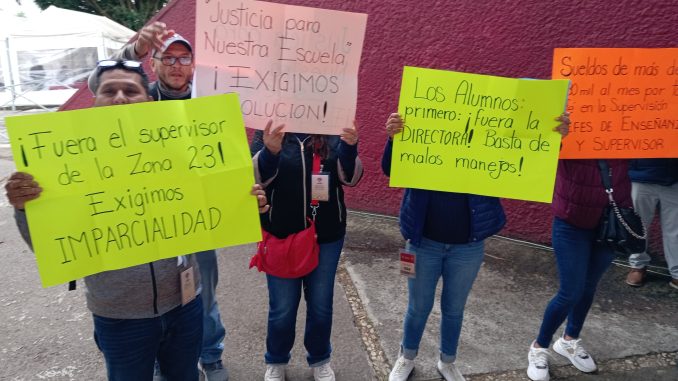 ¡Fuera el supervisor
de la Zona 23!
Exigimos
IMPARCIALIDAD
"Justicia para
Nuestra Escuela"
¡EXIGIMOS
SOLUCION!
Los Alumnos:
primero: ¡fuera la
DIRECTORA! Basta de
malos manejos!
Sueldos de más de
mil al mes por
en la Supervisión
JEFES DE ENSEÑAN
Y SUPERVISOR